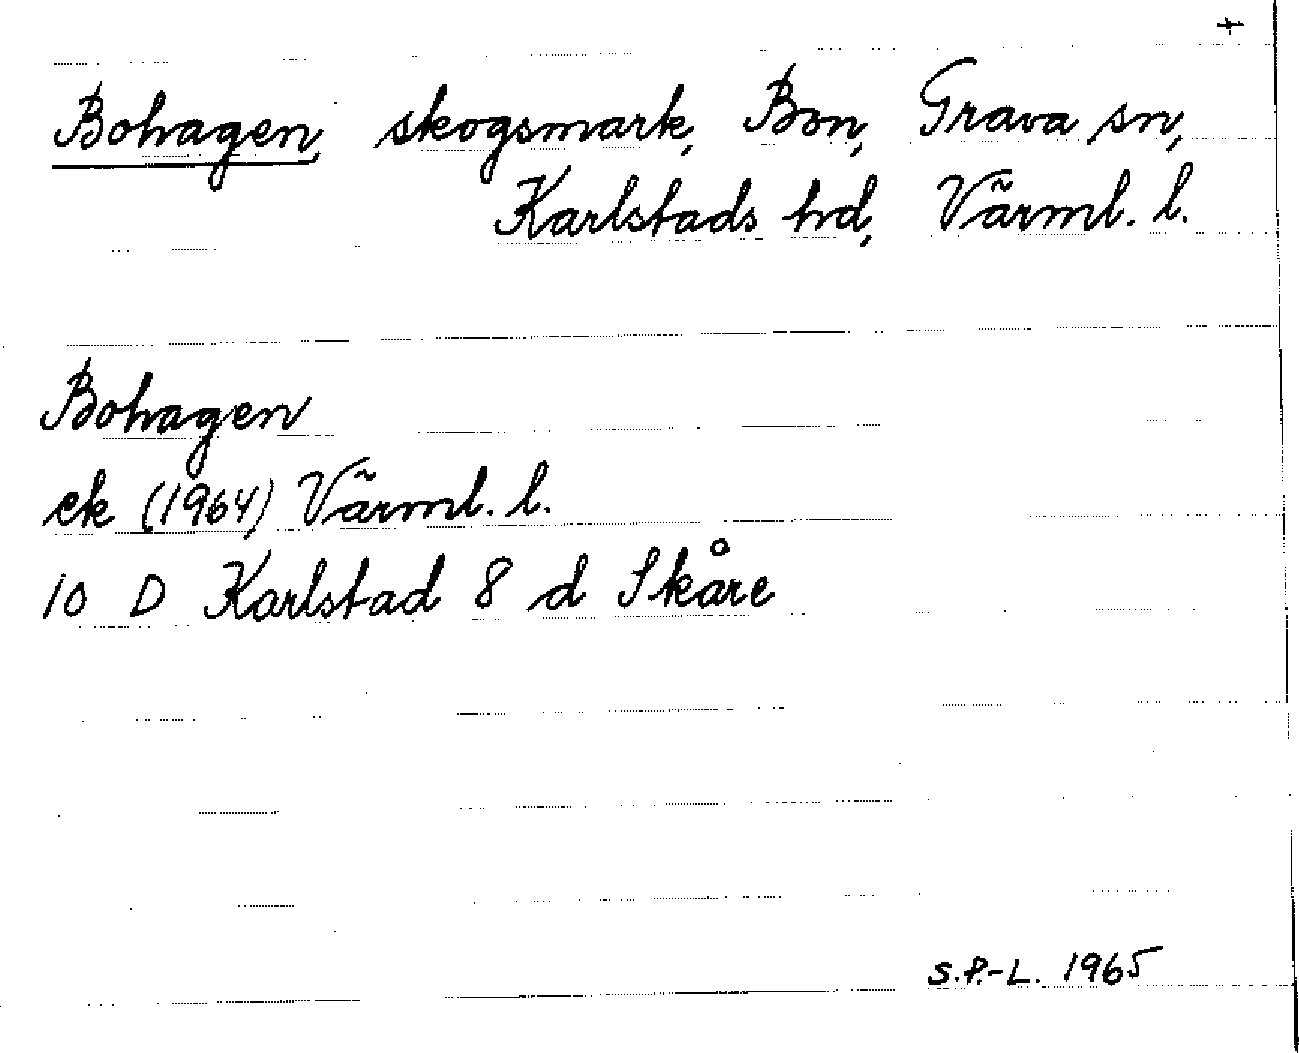 Bohagen, skogsmark, Bon, Grava sn,
Karlstads hd, Värml. l.
Bohagen
ek (1964) Värml. l.
10 D Karlstad 8 d Skåre
S.P.-L. 1965